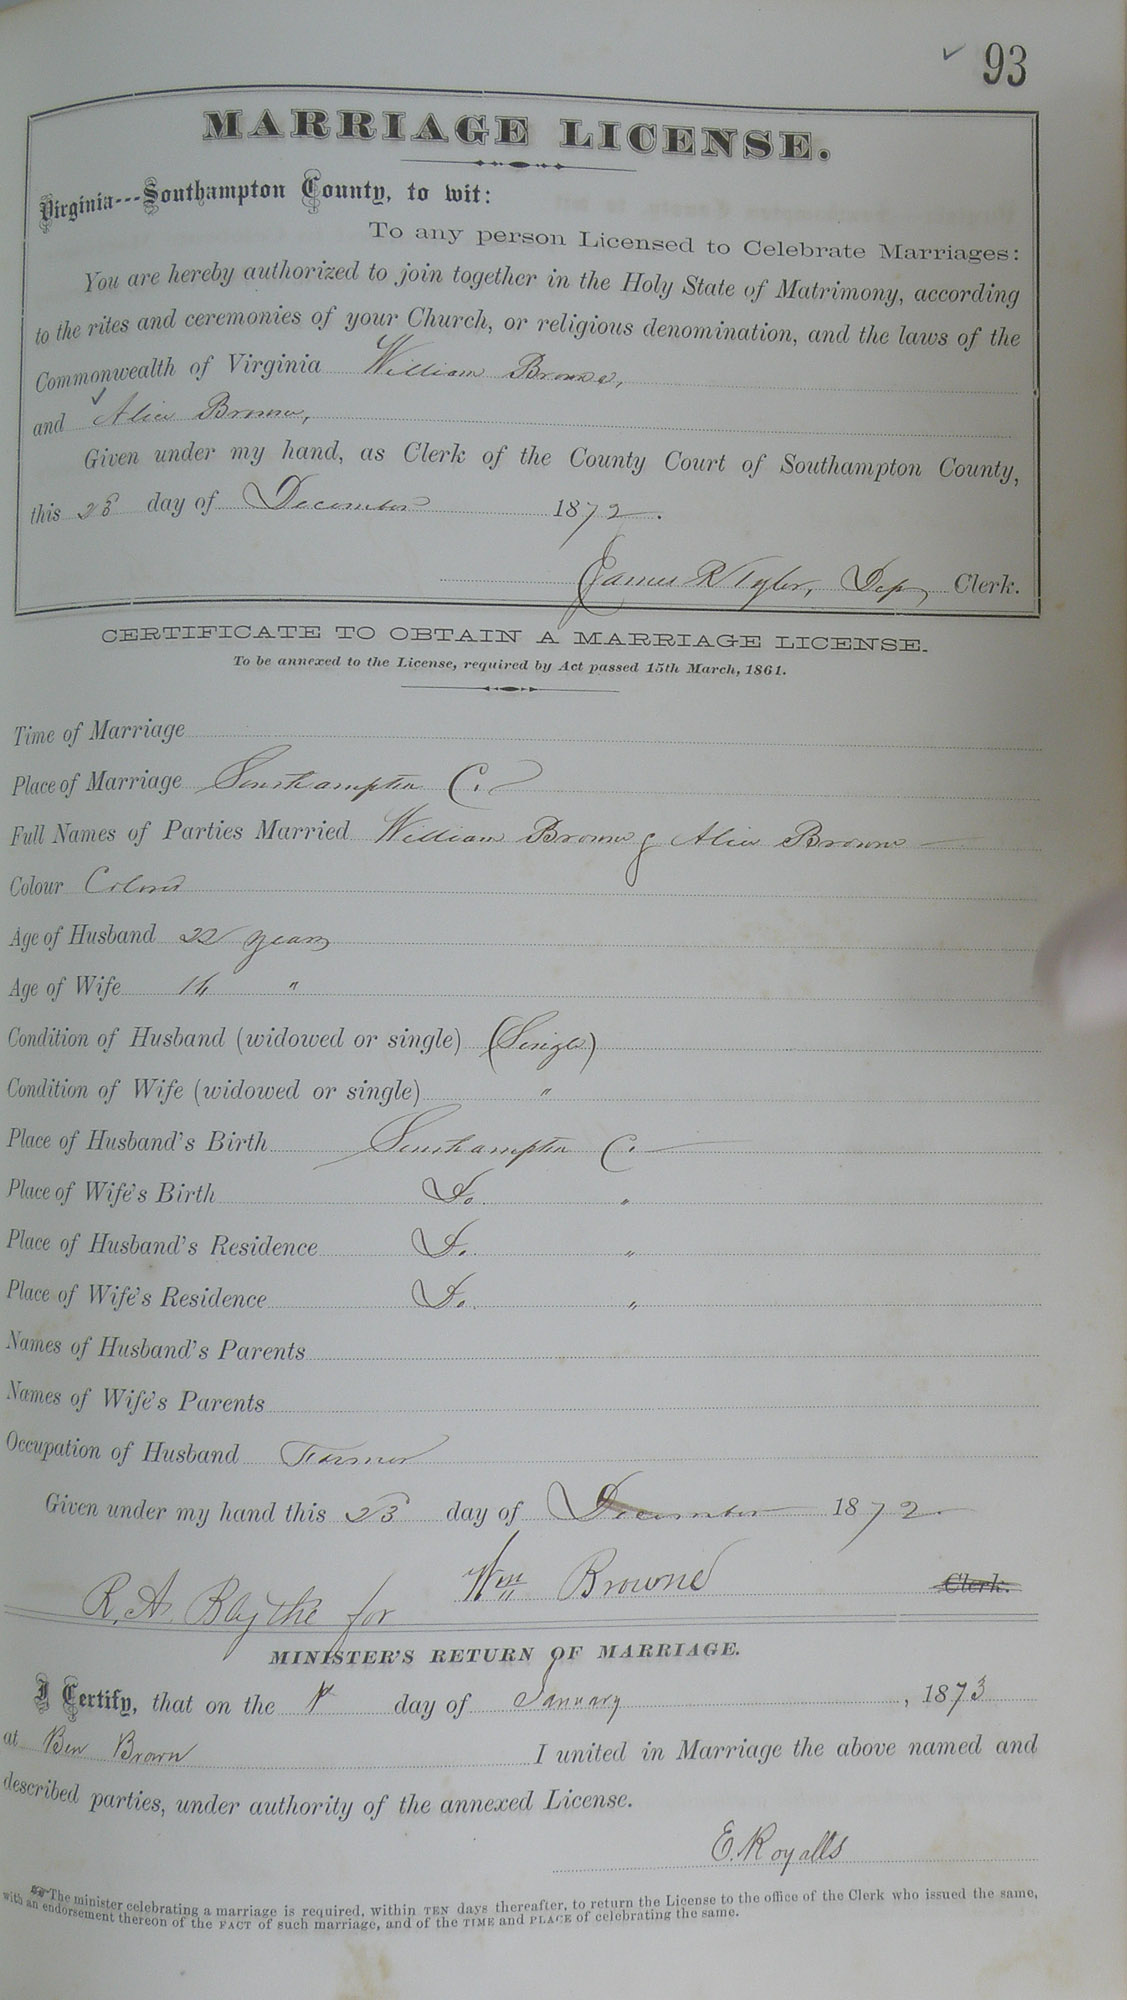 93
MARRIAGE LICENSE.
Virginia---Southampton County, to wit:
To any person Licensed to Celebrate Marriages:
You are hereby authorized to join together in the Holy State of Matrimony, according
to the rites and ceremonies of your Church, or religious denomination, and the laws of the
Commonwealth of Virginia William Browne,
and Alice Browne,
Given under my hand, as Clerk of the County Court of Southampton County,
this 23 day of December 1872.
James R Tyler, Dep Clerk.
CERTIFICATE TO OBTAIN A MARRIAGE LICENSE.
To be annexed to the License, required by Act passed 15th March, 1861.
Time of Marriage
Place of Marriage Southampton C.
Full Names of Parties Married William Browne & Alice Browne
Colour Colored
Age of Husband 22 years
Age of Wife "
Condition of Husband (widowed or single) (Single)
Condition of Wife (widowed or single) "
Place of Husband's Birth Southampton C.
Place of Wife's Birth Do. "
Place of Husband's Residence Do. "
Place of Wife's Residence Do. "
Names of Husband's Parents
Names of Wife's Parents
Occupation of Husband Farmer
Given under my hand this 23 day of December 1872.
Wm Browne Clerk.
R. A. Blythe for
MINISTER'S RETURN OF MARRIAGE.
I Certify, that on the day of January, 1873
at Ben Brown I united in Marriage the above named and
described parties, under authority of the annexed License.
E. Royalls
The minister celebrating a marriage is required, within TEN days thereafter, to return the License to the office of the Clerk who issued the same,
with an endorsement thereon of the FACT of such marriage, and of the TIME and PLACE of celebrating the same.